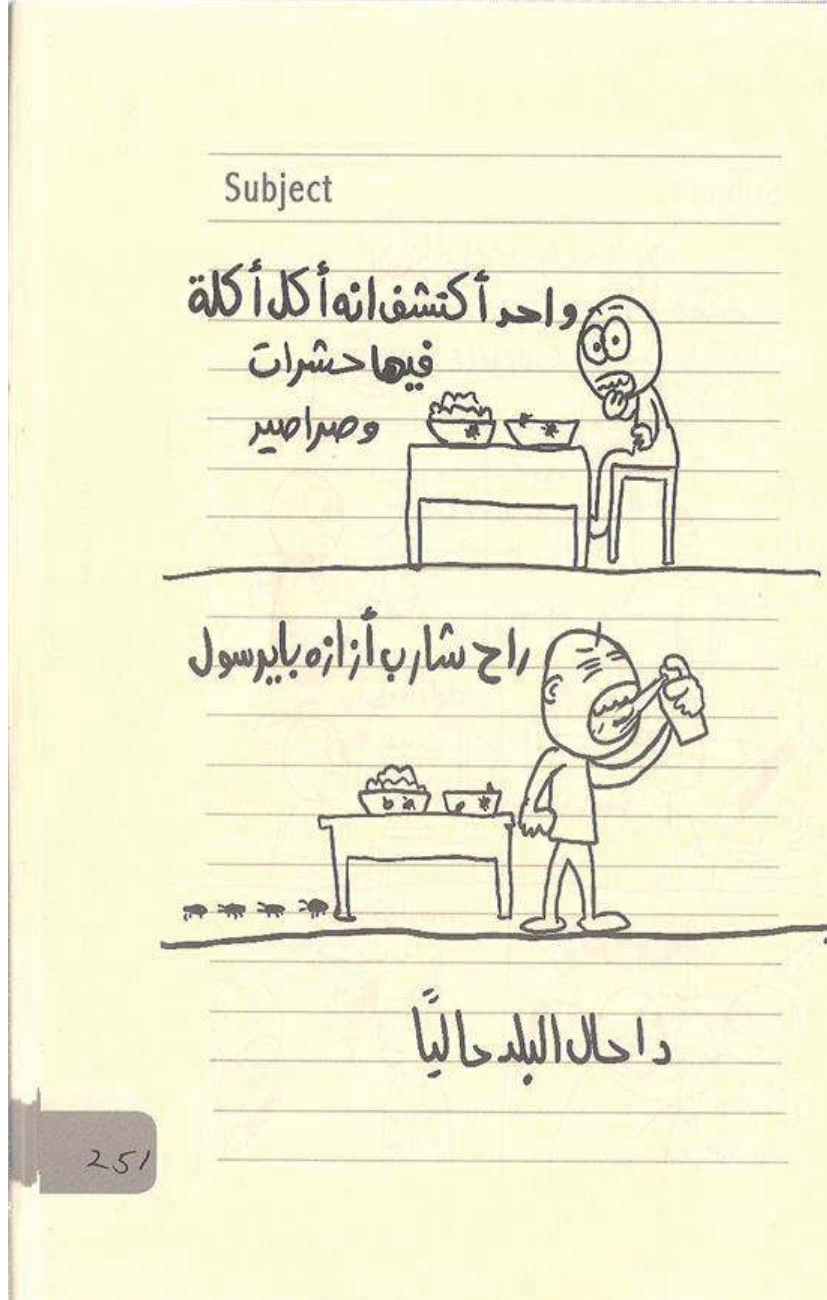 Subject
واحد أكتشف انه أكل أكلة
فيها حشرات
وصراصير
راح شارب أزازه بايرسول
دا حال البلد حاليًا
251